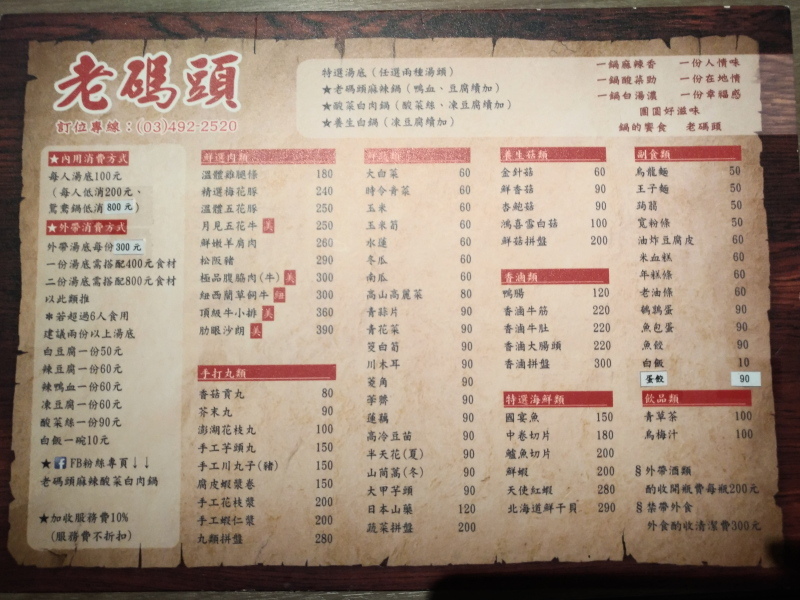 老碼頭
訂位專線：(03)492-2520
特選湯底（任選兩種湯頭）
★老碼頭麻辣鍋（鴨血、豆腐續加）
★酸菜白肉鍋（酸菜絲、凍豆腐續加）
★養生白鍋（凍豆腐續加）
一鍋麻辣香 一份人情味
一鍋酸菜助 一份在地情
一鍋白湯濃 一份幸福感
團圓好滋味
鍋的饗食 老碼頭
★內用消費方式
每人湯底100元
（每人低消200元、
鴛鴦鍋低消 800元）
★外帶消費方式
外帶湯底每份300元
一份湯底需搭配400元食材
二份湯底需搭配800元食材
以此類推
＊若超過6人食用
建議兩份以上湯底
白豆腐一份50元
辣豆腐一份60元
辣鴨血一份60元
凍豆腐一份60元
酸菜絲一份90元
白飯一碗10元
★f FB粉絲專頁↓↓
老碼頭麻辣酸菜白肉鍋
★加收服務費10%
(服務費不折扣)
鮮選肉類
溫體雞腿條 180
精選梅花豚 240
溫體五花豚 250
月見五花牛 美 250
鮮嫩羊肩肉 260
松阪豬 290
極品腹脇肉(牛) 美 300
紐西蘭草飼牛 紐 300
頂級牛小排 美 360
肋眼沙朗 美 390
手打丸類
香菇貢丸 80
芥末丸 90
澎湖花枝丸 100
手工芋頭丸 150
手工川丸子(豬) 150
腐皮蝦漿卷 150
手工花枝漿 200
手工蝦仁漿 200
丸類拼盤 280
鮮蔬類
大白菜 60
時令青菜 60
玉米 60
玉米筍 60
水蓮 60
冬瓜 60
南瓜 60
高山高麗菜 80
青蒜片 90
青花菜 90
茭白筍 90
川木耳 90
菱角 90
荸薺 90
蓮藕 90
高冷豆苗 90
半天花(夏) 90
山茼蒿(冬) 90
大甲芋頭 90
日本山藥 120
蔬菜拼盤 200
養生菇類
金針菇 60
鮮香菇 90
杏鮑菇 90
鴻喜雪白菇 100
鮮菇拼盤 200
香滷類
鴨腸 120
香滷牛筋 220
香滷牛肚 220
香滷大腸頭 220
香滷拼盤 300
特選海鮮類
國宴魚 150
中卷切片 180
鱸魚切片 200
鮮蝦 200
天使紅蝦 280
北海道鮮干貝 290
副食類
烏龍麵 50
王子麵 50
蒟蒻 50
寬粉條 50
油炸豆腐皮 60
米血糕 60
年糕條 60
老油條 60
鵪鶉蛋 90
魚包蛋 90
魚餃 90
白飯 10
蛋餃 90
飲品類
青草茶 100
烏梅汁 100
§外帶酒類
酌收開瓶費每瓶200元
§禁帶外食
外食酌收清潔費300元